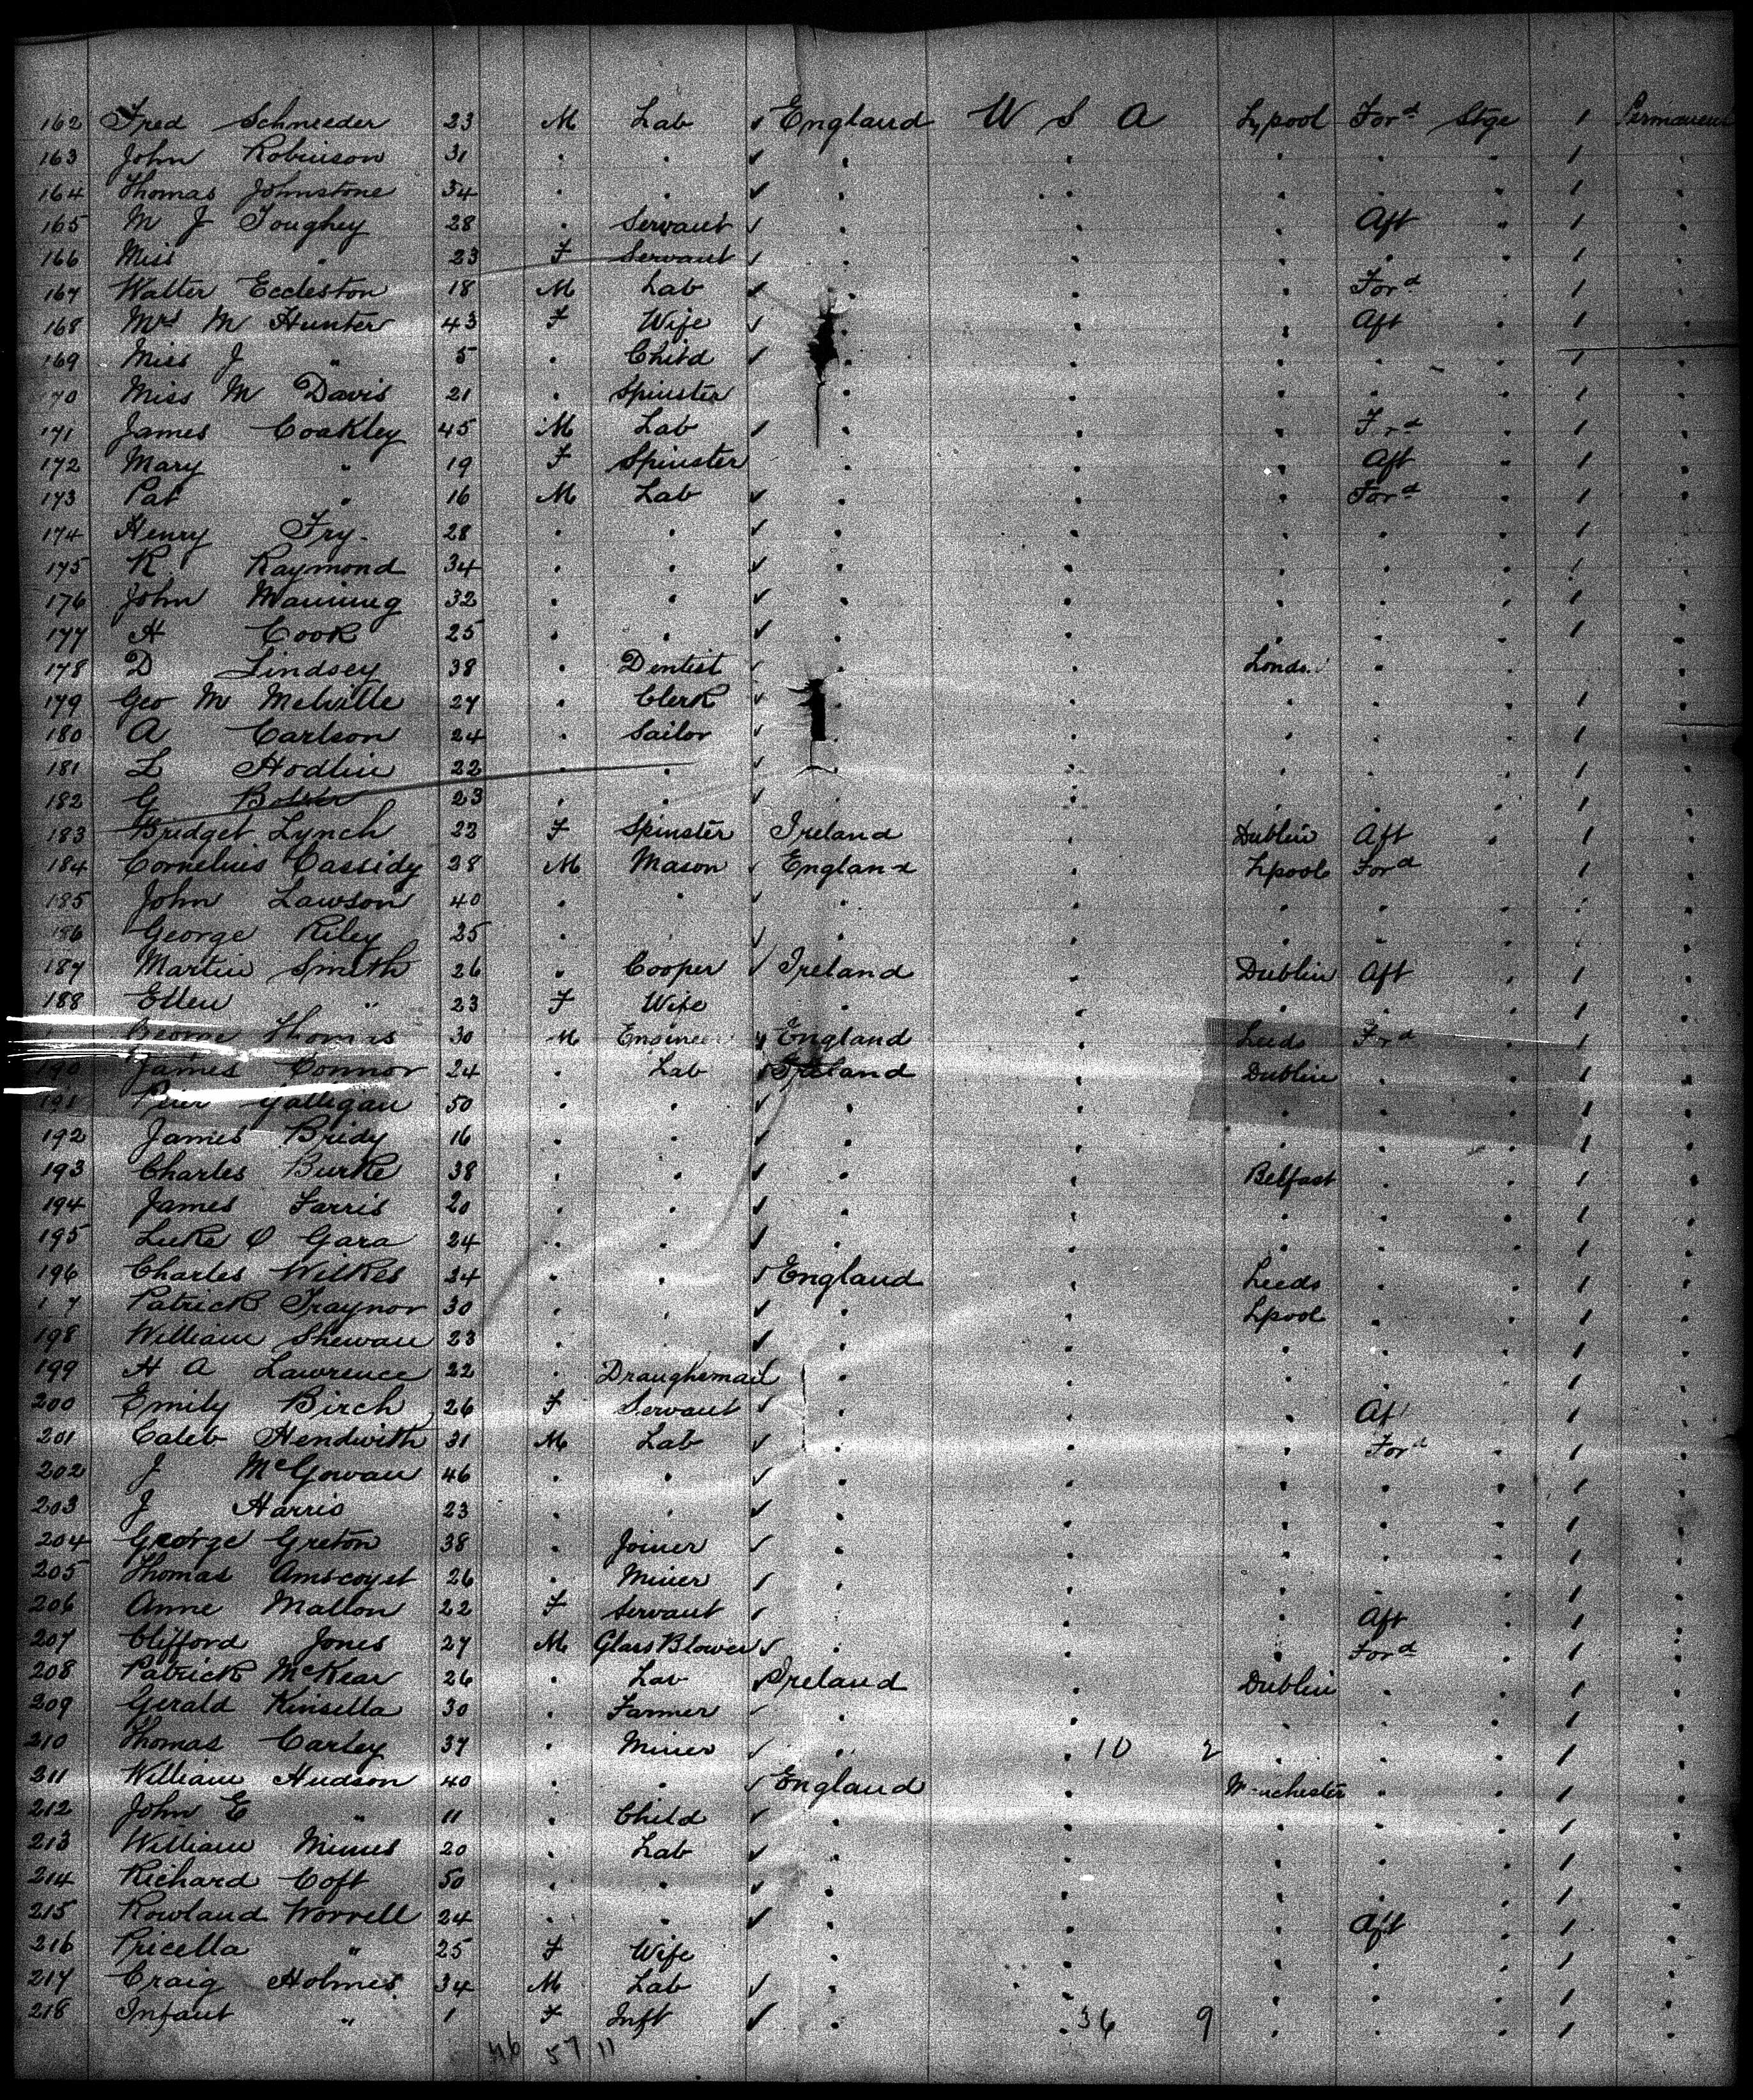 162 Fred Schneeder 23 M Lab ✓ England U S A L,pool Forᵈ Stge 1 Permanent
163 John Robinson 31 . . ✓ . . . . . 1 .
164 Thomas Johnstone 34 . . ✓ . . . . . 1 .
165 M J Toughey 28 . Servant ✓ . . . Aft . 1 .
166 Miss " 23 F Servant ✓ . . . . . 1 .
167 Walter Eccleston 18 M Lab ✓ . . . Forᵈ . 1 .
168 Mrs M Hunter 43 F Wife ✓ . . . Aft . 1 .
169 Miss J " 5 . Child ✓ . . . . . 1 .
70 Miss M Davis 21 . Spinster . . . . . 1 .
171 James Coakley 45 M Lab ✓ . . . F rᵈ . 1 .
172 Mary " 19 F Spinster . . . Aft . 1 .
173 Pat " 16 M Lab ✓ . . . Forᵈ . 1 .
174 Henry Fry 28 . . ✓ . . . . . 1 .
175 R Raymond 34 . . ✓ . . . . . 1 .
176 John Manning 32 . . ✓ . . . . . 1 .
177 H Cook 25 . . ✓ . . . . . 1 .
178 D Lindsey 38 . Dentist ✓ . . . . .
179 Geo M Melville 27 . Clerk ✓ . . . . . 1 .
180 A Carlson 24 . Sailor ✓ . . . . . 1 .
181 L Hodlin 22 . . ✓ . . . . . 1 .
182 G 23 . . ✓ . . . . . 1 .
183 Bridget Lynch 22 F Spinster Ireland . Dublin Aft . 1 .
184 Cornelius Cassidy 38 M Mason ✓ England . Lpool Forᵈ . 1 .
185 John Lawson 40 . . . . . . . 1 .
186 George Riley 25 . . ✓ . . . . . 1 .
187 Martin Smith 26 . Cooper ✓ Ireland . Dublin Aft . 1 .
188 Ellen " 23 F Wife . . . . . 1 .
George Thomas 30 M Engineer ✓ England . Leeds F rᵈ . 1 .
190 James Connor 24 . Lab ✓ Ireland . Dublin . . 1 .
191 Galligan 50 . . ✓ . . . . . 1 .
192 James Bridy 16 . . ✓ . . . . . 1 .
193 Charles Burke 38 . . ✓ . . Belfast . . 1 .
194 James Farris 20 . . ✓ . . . . . 1 .
195 Luke O Gara 24 . . ✓ . . . . . 1 .
196 Charles Wilkes 34 . . ✓ England . Leeds . . 1 .
1 7 Patrick Traynor 30 . . ✓ . . Lpool . . 1 .
198 William Shewan 23 . . ✓ . . . . . 1 .
199 H A Lawrence 22 . Draughsman ✓ . . . . . 1 .
200 Emily Birch 26 F Servant ✓ . . . Aft . 1 .
201 Caleb Hendwith 31 M Lab ✓ . . . Forᵈ . 1 .
202 J McGowan 46 . . ✓ . . . . . 1 .
203 J Harris 23 . . ✓ . . . . . 1 .
204 George Greton 38 . Joiner ✓ . . . . . 1 .
205 Thomas 26 . Miner ✓ . . . . . 1 .
206 Anne Mallon 22 F Servant ✓ . . . Aft . 1 .
207 Clifford Jones 27 M Glass Blower ✓ . . . Forᵈ . 1 .
208 Patrick McKear 26 . Lab ✓ Ireland . Dublin . . 1 .
209 Gerald Kinsella 30 . Farmer ✓ . . . . . 1 .
210 Thomas Carley 37 . Miner ✓ . . 10 2 . . . 1 .
211 William Hudson 40 . . ✓ England . Manchester . . 1 .
212 John E " 11 . Child ✓ . . . . . 1 .
213 William Minnes 20 . Lab ✓ . . . . . 1 .
214 Richard Coft 50 . . ✓ . . . . . 1 .
215 Rowland Worrell 24 . . ✓ . . . Aft . 1 .
216 Pricella " 25 F Wife . . . . . 1 .
217 Craig Holmes 34 M Lab ✓ . . . . . 1 .
218 Infant " 1 F Inft ✓ . . 36 9 . . . 1 .
46 57 11